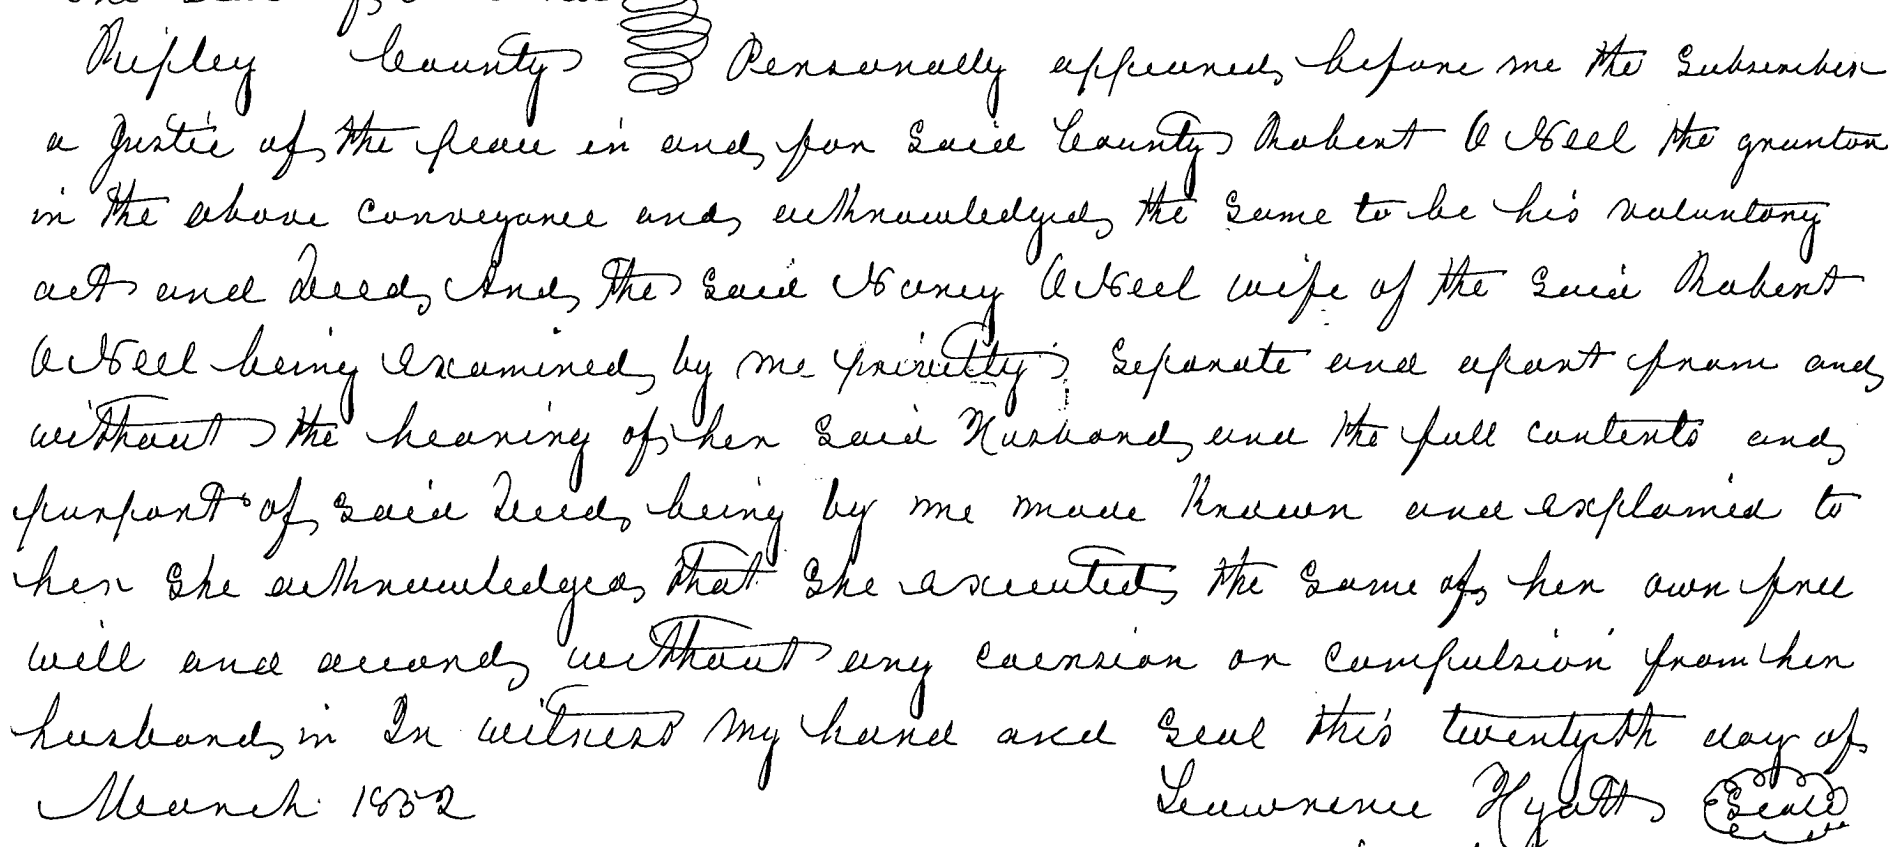 Ripley County Personally appeared before me the Subscriber
a Justic of the peace in and for Said County Robert O Neel the grantor
in the above conveyance and acknowledged the Same to be his voluntary
act and Deed And the Said Nancy O Neel wife of the Said Robert
O Neel being examined by me privettly Separate and apart from and
without the hearing of her Said Husband and the full contents and
purport of Said Deed being by me made Known and explained to
her She acknowledged that She executed the Same of her own free
will and accord without any coersion or compulsion from her
husband in In witness my hand and Seal this twentyth day of
March 1852 Lawrence Hyatt Seal